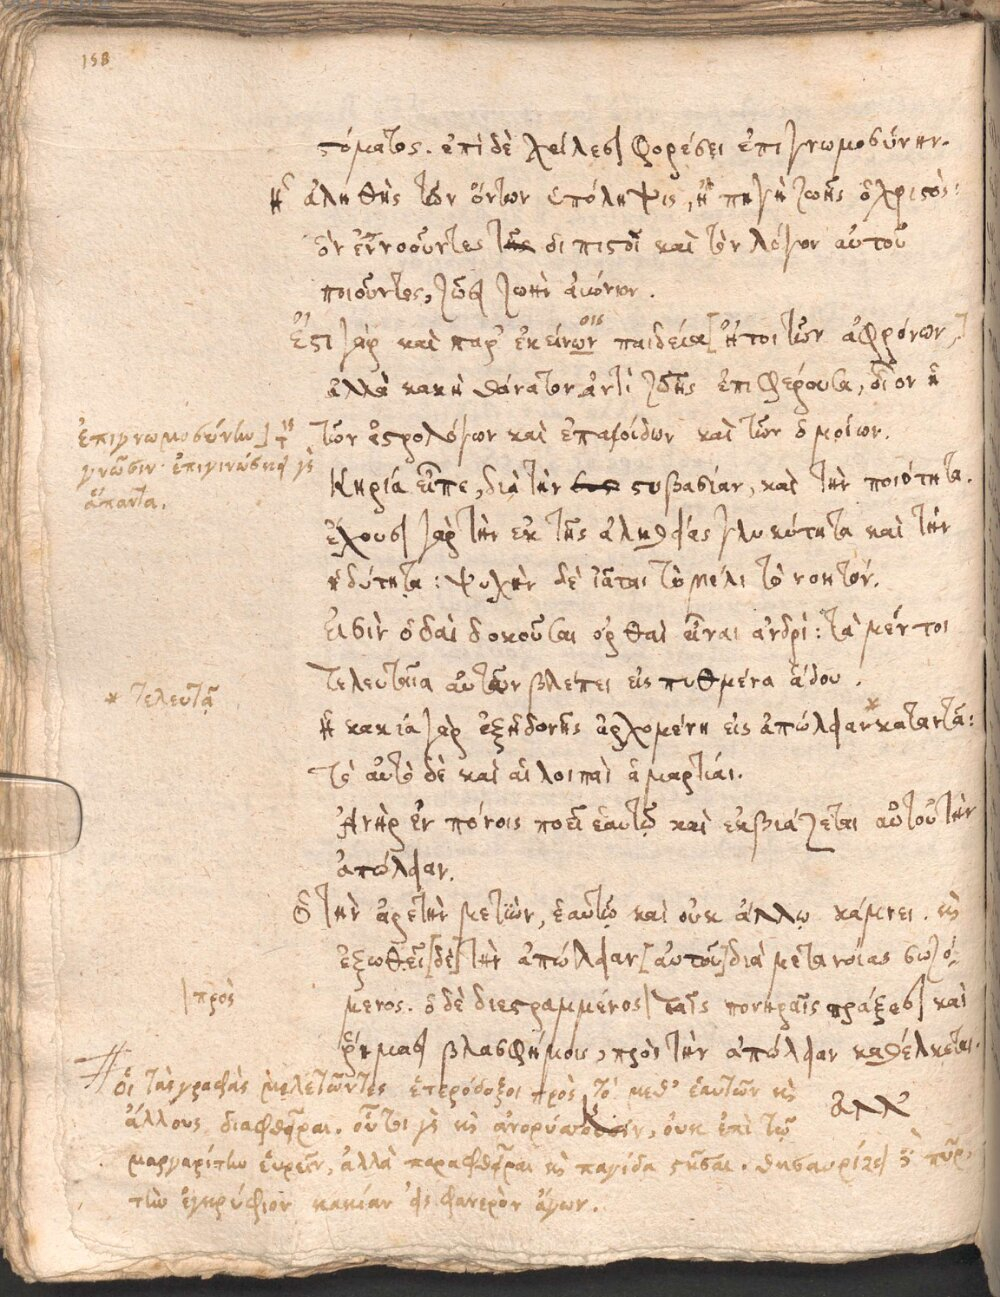 158
στόματος. ἐπὶ δὲ χείλεσι φορέσει ἐπιγνωμοσύνην.
ἡ ἀληθὴς τῶν ὄντων ὑπόληψις, ἢ πηγὴ ζωῆς ὁ χριστὸς:
ὃν ἐννοοῦντες οἱ πιστοὶ καὶ τὸν λόγον αὐτοῦ
ποιοῦντες, ζῶσι ζωὴν αἰώνιον.
Ἔστι γὰρ καὶ παρ' ἐκείνων οις παιδεία [ἤτοι τῶν ἀφρόνων,]
ἀλλὰ κακὴ θάνατον ἀντὶ ζωῆς ἐπιφέρουσα, οἷον ἡ
τῶν ἀστρολόγων καὶ ἐπαοίδων καὶ τῶν ὁμοίων.
ἐπιγνωμοσύνην] τὴν
γνῶσιν· ἐπιγινώσκει γὰρ
ἅπαντα.
Κηρία εἶπε, διὰ τὴν συβασίαν, καὶ τὴν ποιότητα.
ἔχουσι γὰρ τὴν ἐκ τῆς ἀληθείας γλυκύτητα καὶ τὴν
ἡδύτητα: ψυχὴν δὲ ἰᾶται τὸ μέλι τὸ νοητόν.
Εἰσὶν ὁδαὶ δοκοῦσαι ὀρθαὶ εἶναι ἀνδρὶ: τὰ μέντοι
τελευταῖα αὐτῶν βλέπει εἰς πυθμένα ἅδου.
* τελευτᾷ
ἡ κακία γὰρ ἐξ ἡδονῆς ἀρχομένη εἰς ἀπώλειαν * καταντᾶ:
τὸ αὐτὸ δὲ καὶ αἱ λοιπαὶ ἁμαρτίαι.
Ἀνὴρ ἐν πόνοις πονεῖ ἑαυτῷ καὶ ἐκβιάζεται αὐτοῦ τὴν
ἀπώλειαν.
Ὁ τὴν ἀρετὴν μετιὼν, ἑαυτῷ καὶ οὐκ ἄλλῳ κάμνει. καὶ
ἐξωθεῖ [δὲ] τὴν ἀπώλειαν [αὐτοῦ] διὰ μετανοίας σωζό-
μενος. ὁ δὲ διεστραμμένος | ταῖς πονηραῖς πράξεσι καὶ
| πρὸς
ῥήμασι βλασφήμοις, πρὸς τὴν ἀπώλειαν καθέλκεται.
# Οἱ τὰς γραφὰς μελετῶντες ἑτερόδοξοι πρὸς τὸ μεθ' ἑαυτῶν καὶ
ἄλλους διαφθεῖραι. οὗτοι γὰρ καὶ ἀνορύττουσιν, οὐκ ἐπὶ τῷ
μαργαρίτην εὑρεῖν, ἀλλὰ παραφθεῖραι καὶ παγίδα στῆσαι. θησαυρίζει πῦρ,
τὴν ἐγκρύφιον κακίαν εἰς φανερὸν ἄγων.